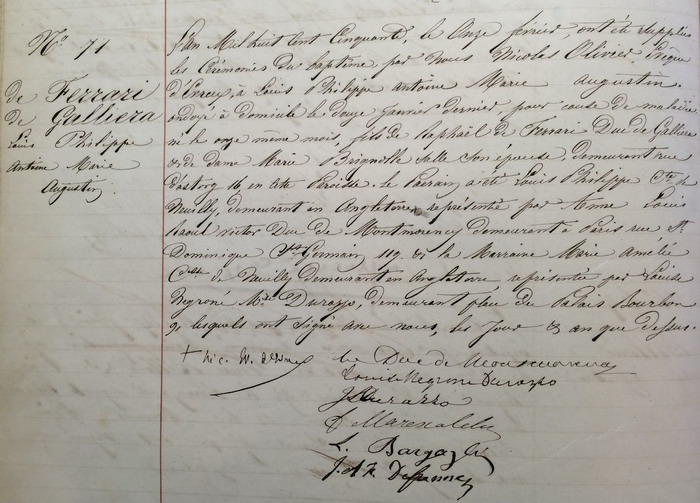 N° 71
de Ferrari
de Galliera
Louis Philippe
Antoine Marie
Augustin
L'an Mil huit cent Cinquante, le Onze février, ont été suppléés
les Cérémonies du baptême, par Nous Nicolas Olivier, Evêque
d'Evreux, à Louis Philippe Antoine Marie Augustin.
ondoyé à domicile le douze Janvier dernier, pour cause de maladie
né le onze même mois, fils de Raphaël de Ferrari Duc de Galliera
& de dame Marie Brignolle Salle son épouse, demeurant rue
d'astorg 16 en cette Paroisse. le Parrain a été Louis Philippe Cte de
Neuilly, demeurant en Angleterre, représenté par Anne Louis
Raoul Victor Duc de Montmorency demeurant à Paris rue St
Dominique St Germain 119. & la Marraine Marie Amélie
Ctsse de Neuilly demeurant en Angleterre, représentée par Louise
Negroné Mise Durazzo, demeurant place du Palais Bourbon
9. lesquels ont signé avec nous, les Jour & an que dessus.
+ Nic. Ev. d'Evreux
le Duc de Montmorency
Louise Negrone Durazzo
Durazzo
L.